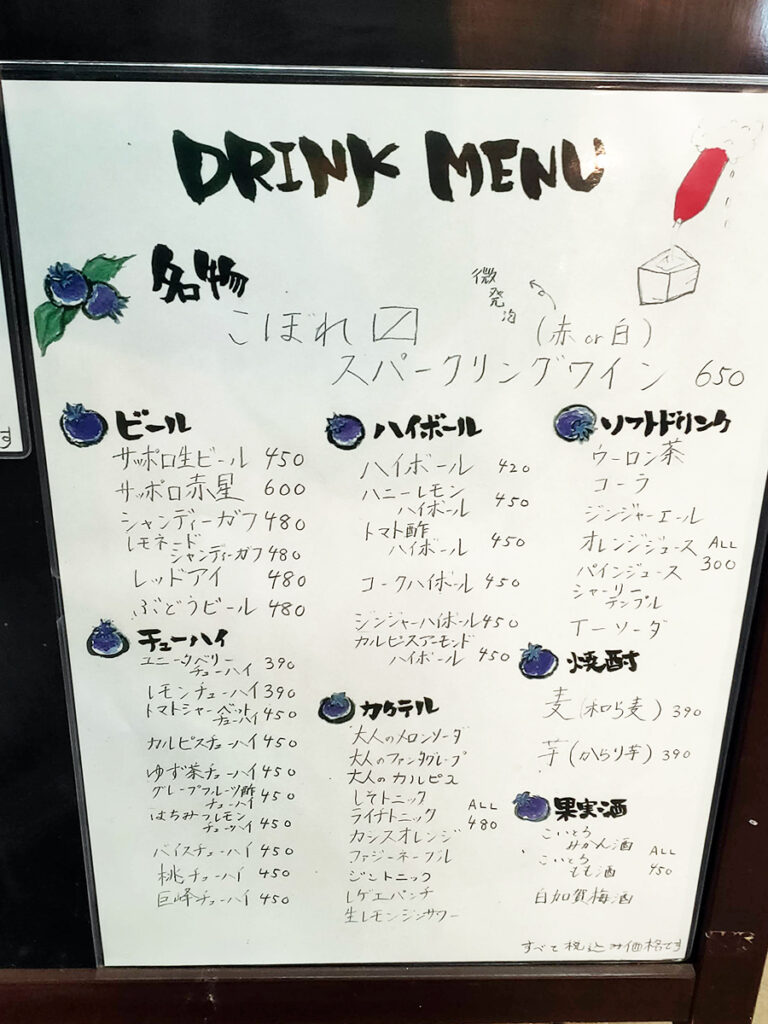 DRINK MENU
名物
微発泡
こぼれ〼 (赤 or 白)
スパークリングワイン 650
ビール
サッポロ生ビール 450
サッポロ赤星 600
シャンディーガフ 480
レモネード
シャンディーガフ 480
レッドアイ 480
ぶどうビール 480
チューハイ
チューハイ 390
レモンチューハイ 390
トマトシャーベット
チューハイ 450
カルピスチューハイ 450
ゆず茶チューハイ 450
グレープフルーツ酢
チューハイ 450
はちみつレモン
チューハイ 450
バイスチューハイ 450
桃チューハイ 450
巨峰チューハイ 450
ハイボール
ハイボール 420
ハニーレモン
ハイボール 450
トマト酢
ハイボール 450
コークハイボール 450
ジンジャーハイボール 450
カルピスアーモンド
ハイボール 450
カクテル
大人のメロンソーダ
大人のファンタグレープ
大人のカルピス
しそトニック
ライチトニック
カシスオレンジ
ファジーネーブル
ジントニック
レゲエパンチ
生レモンジンサワー
ALL
480
ソフトドリンク
ウーロン茶
コーラ
ジンジャーエール
オレンジジュース
パインジュース
シャーリー
テンプル
ALL
300
焼酎
麦(和ら麦) 390
芋(からり芋) 390
果実酒
こいとろ
みかん酒
こいとろ
もも酒
白加賀梅酒
ALL
450
すべて税込み価格です
す